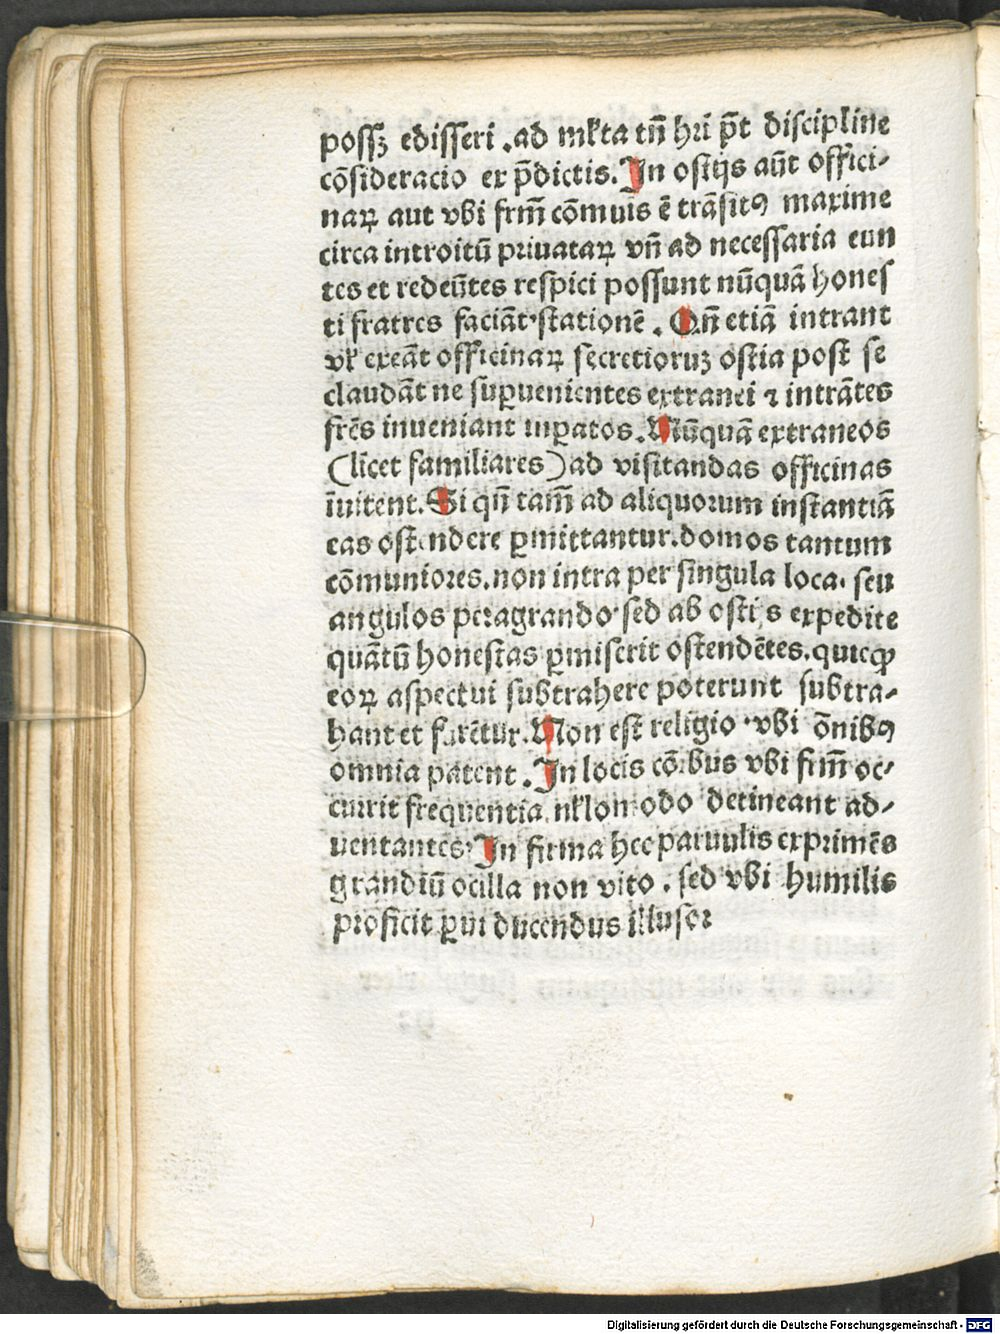 possꝫ edisseri .ad mkta tn̄ hr̄i p̄t discipline
cōsideracio ex p̄dictis. In ostijs aūt offici-
naꝝ aut vbi frm̄ cōmuis ē trāsitꝰ maxime
circa introitū priuataꝝ vn̄ ad necessaria eun
tes et redeūtes respici possunt nūquā hones
ti fratres faciāt stationē . Qn̄ etiā intrant
vl̓ exeāt officinaꝝ secretioruꝫ ostia post se
claudāt ne suꝑuenientes extranei ⁊ intrātes
frēs inueniant inꝑatos. Nūquā extraneos
(licet familiares) ad visitandas officinas
īuitent. Si qn̄ tam̄ ad aliquorum instantiā
eas ostendere ꝑmittantur. domos tantum
cōmuniores. non intra per singula loca. seu
angulos peragrando sed ab ostijs expedite
quātū honestas ꝑmiserit ostendētes. quicqꝫ
eoꝝ aspectui subtrahere poterunt subtra-
hant et furētur. Non est religio vbi ōnibꝰ
omnia patent . In locis cōibus vbi frm̄ oc-
currit frequentia nklomodo detineant ad-
uentantes. In firma hec paruulis exprimēs
grandiū ocilla non vito . sed vbi humilis
proficit ꝑui ducendus illusor
Digitalisierung gefördert durch die Deutsche Forschungsgemeinschaft - DFG